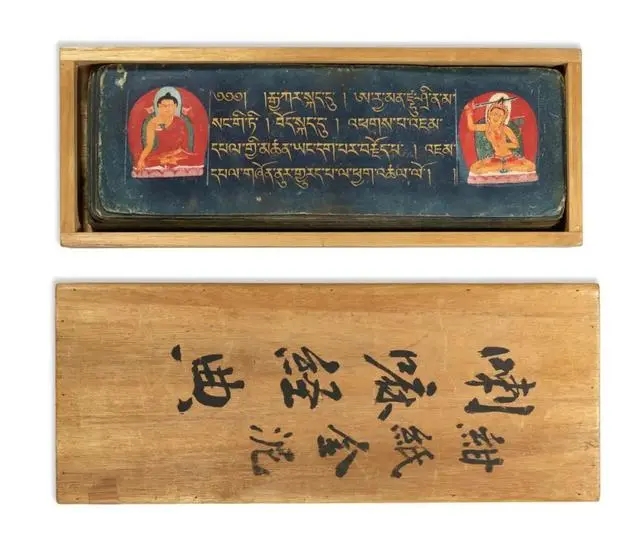 ༄༅༅། །རྒྱ་གར་སྐད་དུ། ཨ་རྱ་མན་ཛུ་ཤྲཱི་ནཱ་མ
སང་གི་ཏི། བོད་སྐད་དུ། འཕགས་པ་འཇམ་
དཔལ་གྱི་མཚན་ཡང་དག་པར་བརྗོད་པ། འཇམ་
དཔལ་གཞོན་ནུར་གྱུར་པ་ལ་ཕྱག་འཚལ་ལོ།
喇嘛經典
紺紙金泥